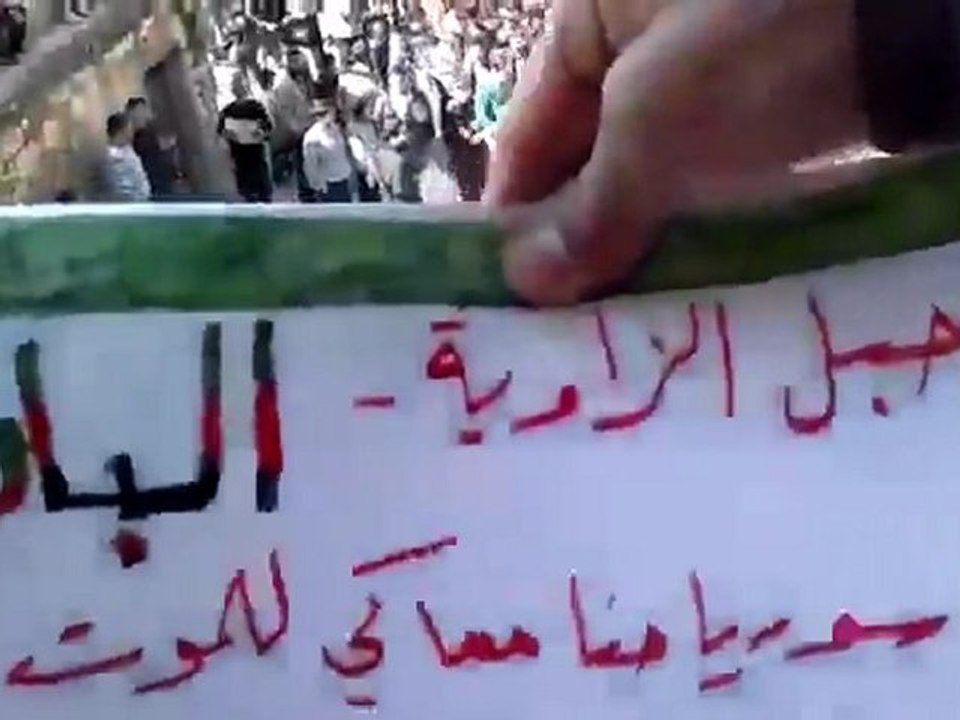 جبل الزاوية - البار
سوريا حنا معاكي للموت